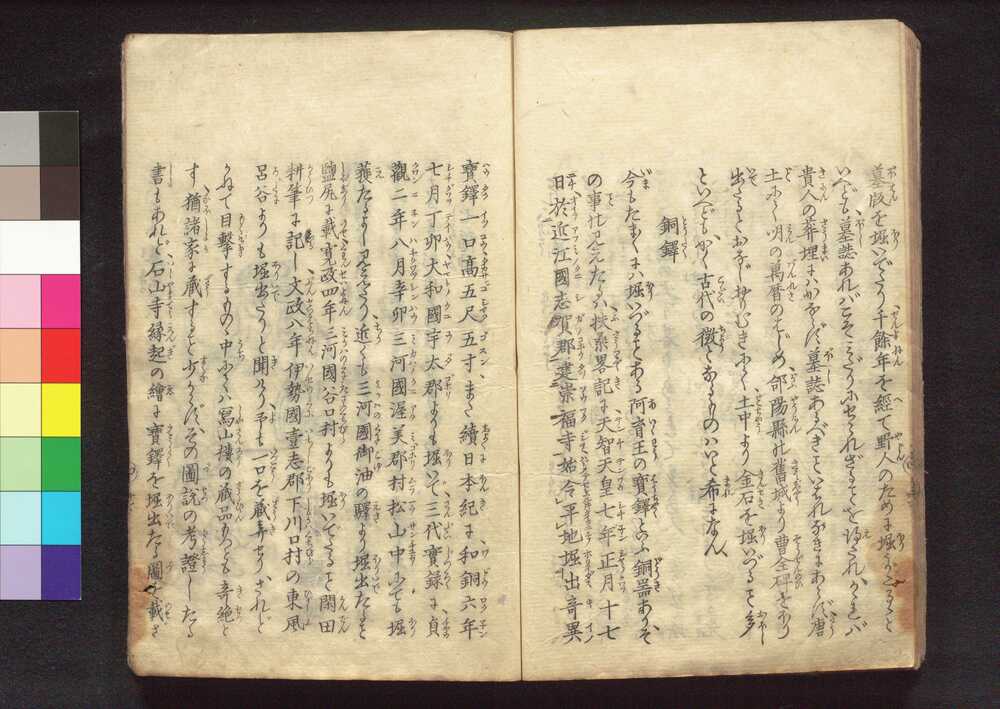 墓版を堀いでたり千餘年を經て野人のために堀
いへども墓誌あれバこそ
貴人の葬埋にハかならず墓誌あるべきといはれなきにあらず唐
土にて明の萬暦のはじめ郃陽縣の舊城より曹全碑をほり
出たるもおなじおもむきにて土中より金石を堀いづること多
といへどもかく古代の徴となるものハいと希になん
銅鐸
今もたまたまハ堀いづることある阿育王の寶鐸といふ銅器ありそ
の事の見えたるハ扶桑畧記に天智天皇七年正月十七
日於近江國志賀郡建崇福寺始令平地堀出奇異
寶鐸一口高五尺五寸、また續日本紀に和銅六年
七月丁卯大和國宇太郡よりも堀いで三代實録に貞
觀二年八月辛卯三河國渥美郡村松山中にても堀
獲たるよし見えたり近くも三河國御油の驛より堀出たること
鹽尻に載寛政四年三河國谷口村よりも堀いでたるを閑田
耕筆に記し文政八年伊勢國壹志郡下川口村の東風
呂谷よりも堀出たりと聞り予も一口を藏弆せり、されど
かねて目擊するものゝ中にてハ寫山樓の藏品もつとも奇絶と
す猶諸家に藏すること少からずその圖説の考證したる
書もあれど石山寺縁起の繪に寶鐸を堀出たる圖を載さ